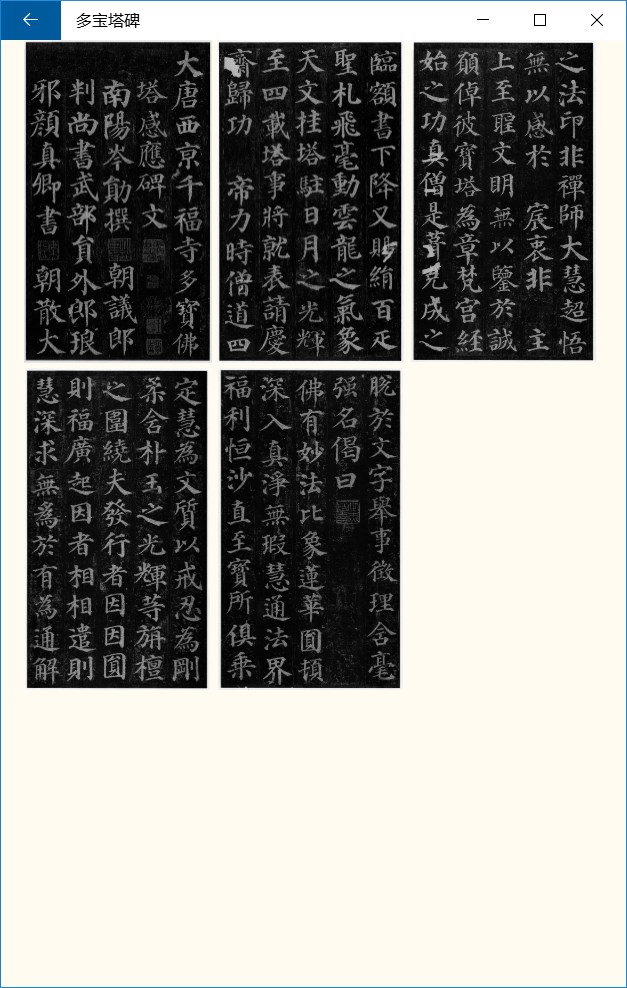 多宝塔碑
大唐西京千福寺多寶佛
塔感應碑文
南陽岑勛撰 朝議郎
判尚書武部員外郎琅
邪顏真卿書 朝散大
臨額書下降又賜絹百疋
聖札飛毫動雲龍之氣象
天文挂塔駐日月之光輝
至四載塔事將就表請慶
齋歸功 帝力時僧道四
之法印非禪師大慧超悟
無以感於 宸衷非 主
上至聖文明無以鑒於誠
願倬彼寶塔為章梵宮經
始之功真僧是葺克成之
定慧為文質以戒忍為剛
柔含朴玉之光輝等旃檀
之圍繞夫發行者因因圓
則福廣起因者相相遣則
慧深求無為於有為通解
脫於文字舉事徵理含毫
强名偈曰
佛有妙法比象蓮華圓頓
深入真淨無瑕慧通法界
福利恒沙直至寶所俱乘